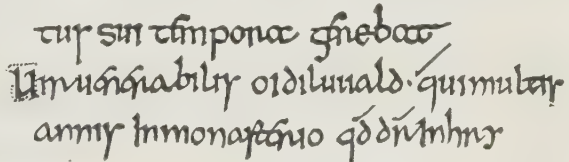 tur sui tempora gerebat
Uir uenerabilis oidiluuald · qui multis
annis In monasterio qđ dr̄ Inhry